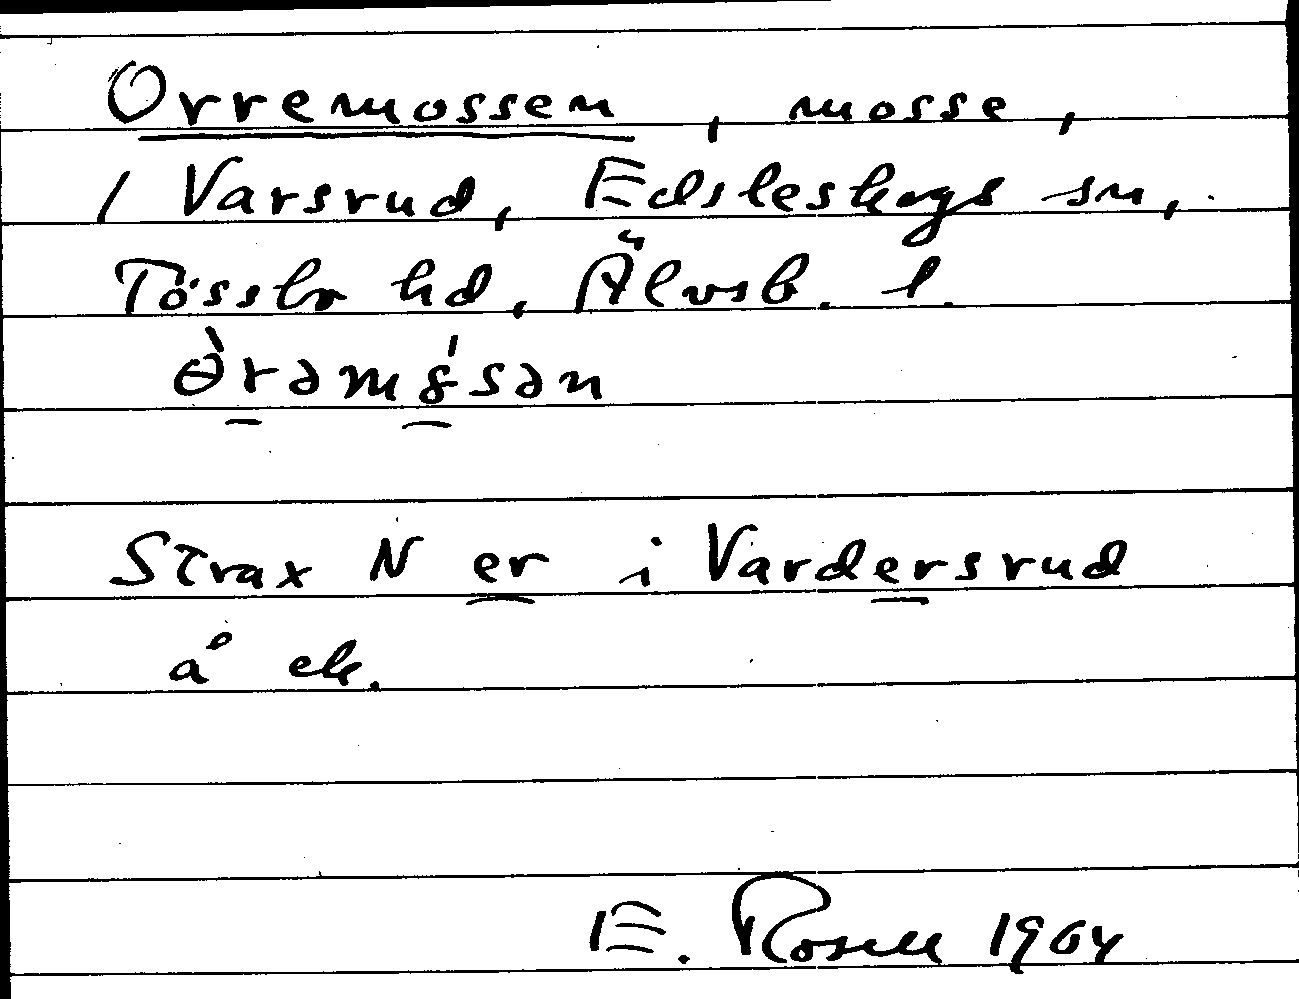 Orremossen, mosse,
/ Varsrud, Edsleskogs sn,
Tössbo hd, Älvsb. l.
ɵ̀rəmȣ́sən
Strax N er i Vardersrud
å ek.
E. Rosell 1964